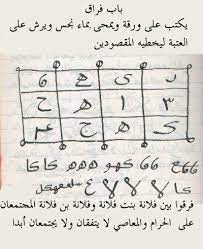 باب فراق
يكتب على ورقة ويمحى بماء نجس ويرش على
العتبة ليخطيه المقصودين
د ى ه ٦
٣ ا ه ح
ى ح ح
٦٦ كهو ههه كا كا
كا لا لا لا ع
فرقوا بين فلانة بنت فلانة وفلانة بن فلانة المجتمعان
على الحرام والمعاصي لا يتفقان ولا يجتمعان أبدا